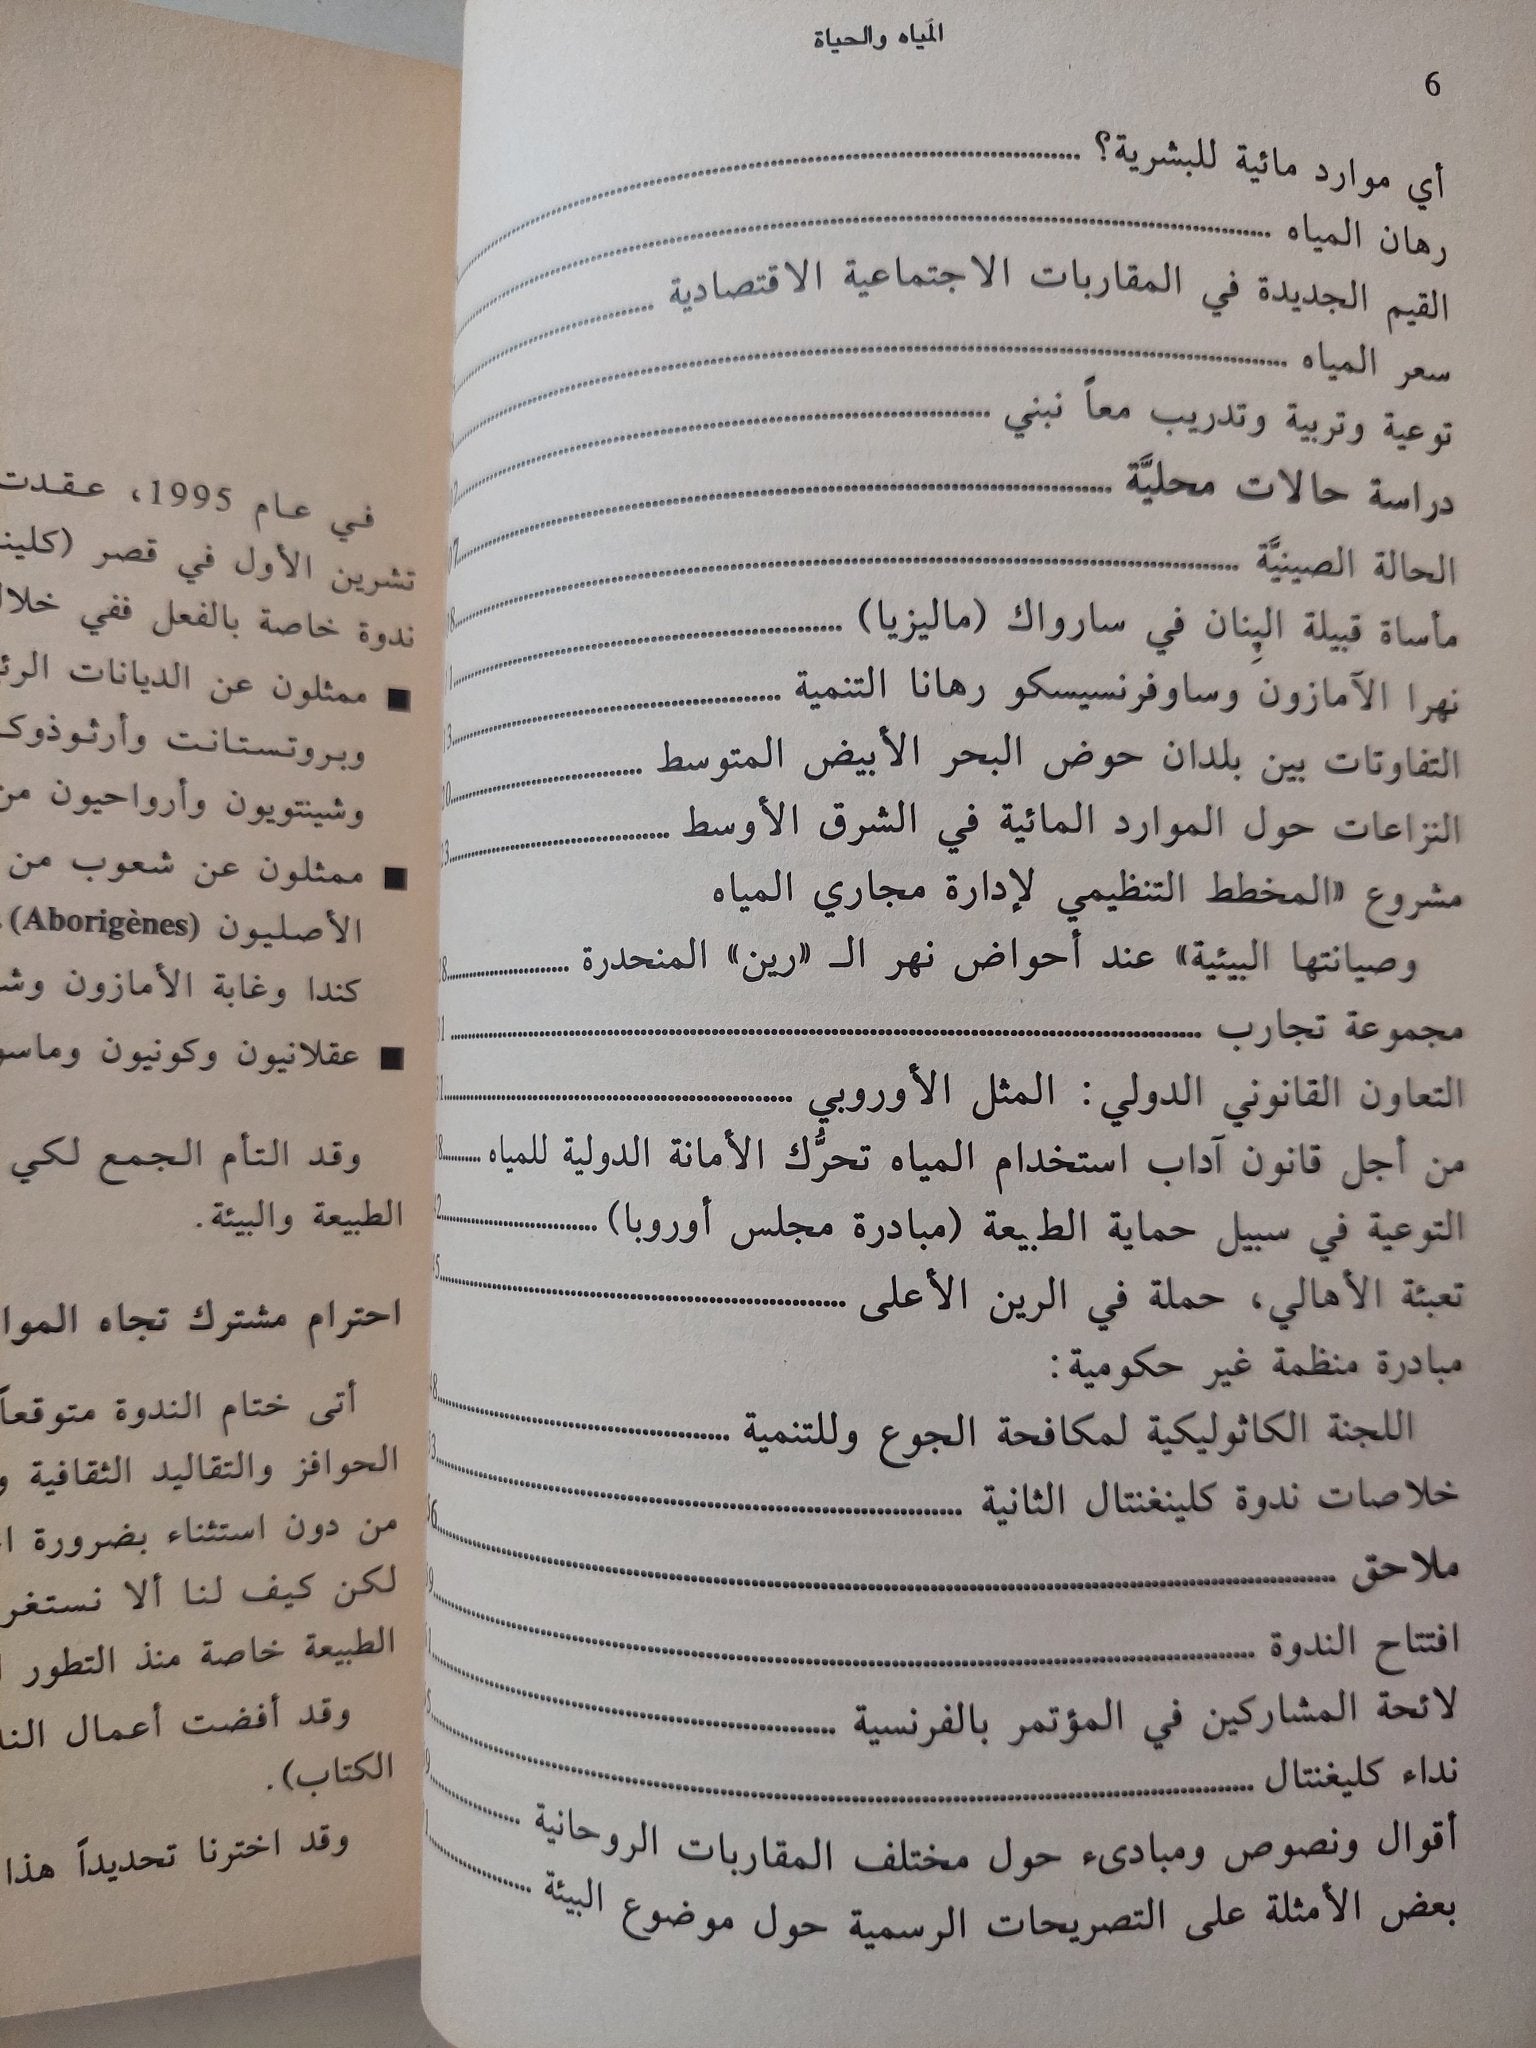 المياه والحياة
6
أي موارد مائية للبشرية؟
رهان المياه
القيم الجديدة في المقاربات الاجتماعية الاقتصادية
سعر المياه
توعية وتربية وتدريب معاً نبني
دراسة حالات محليَّة
الحالة الصينيَّة
مأساة قبيلة البِنان في سارواك (ماليزيا)
نهرا الآمازون وساوفرنسيسكو رهانا التنمية
التفاوتات بين بلدان حوض البحر الأبيض المتوسط
النزاعات حول الموارد المائية في الشرق الأوسط
مشروع «المخطط التنظيمي لإدارة مجاري المياه
وصيانتها البيئية» عند أحواض نهر الـ «رين» المنحدرة
مجموعة تجارب
التعاون القانوني الدولي: المثل الأوروبي
من أجل قانون آداب استخدام المياه تحرُّك الأمانة الدولية للمياه
التوعية في سبيل حماية الطبيعة (مبادرة مجلس أوروبا)
تعبئة الأهالي، حملة في الرين الأعلى
مبادرة منظمة غير حكومية:
اللجنة الكاثوليكية لمكافحة الجوع وللتنمية
خلاصات ندوة كلينغنتال الثانية
ملاحق
افتتاح الندوة
لائحة المشاركين في المؤتمر بالفرنسية
نداء كليغنتال
أقوال ونصوص ومبادىء حول مختلف المقاربات الروحانية
بعض الأمثلة على التصريحات الرسمية حول موضوع البيئة
في عام 1995، عقدت
تشرين الأول في قصر (كلين
ندوة خاصة بالفعل ففي خلال
■ ممثلون عن الديانات الرئ
وبروتستانت وأرثوذوك
وشينتويون وأرواحيون من
■ ممثلون عن شعوب من
الأصليون (Aborigènes)
كندا وغابة الأمازون وش
■ عقلانيون وكونيون وماسو
وقد التأم الجمع لكي
الطبيعة والبيئة.
احترام مشترك تجاه الموا
أتى ختام الندوة متوقعاً
الحوافز والتقاليد الثقافية و
من دون استثناء بضرورة ا
لكن كيف لنا ألا نستغر
الطبيعة خاصة منذ التطور ا
وقد أفضت أعمال الند
الكتاب).
وقد اخترنا تحديداً هذا